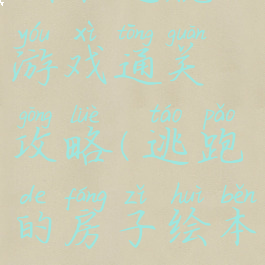 yóu xì tōng guān
游戏通关
gōng lüè táo pǎo
攻略(逃跑
de fáng zi huì běn
的房子绘本